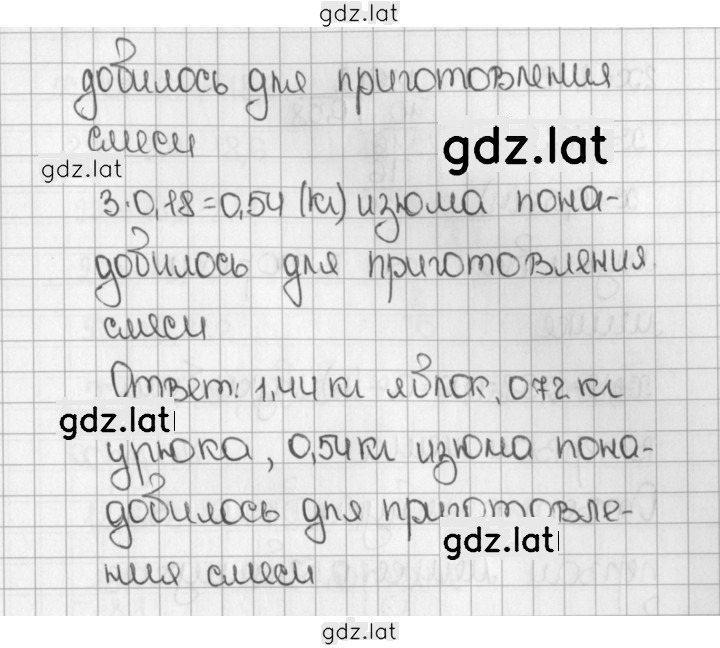 gdz.lat
добилось для приготовления
смеси
gdz.lat
gdz.lat
3·0,18=0,54 (кг) изюма пона-
добилось для приготовления
смеси
Ответ: 1,44 кг яблок, 0,72 кг
gdz.lat
урюка, 0,54 кг изюма пона-
добилось для приготовле-
gdz.lat
ния смеси
gdz.lat